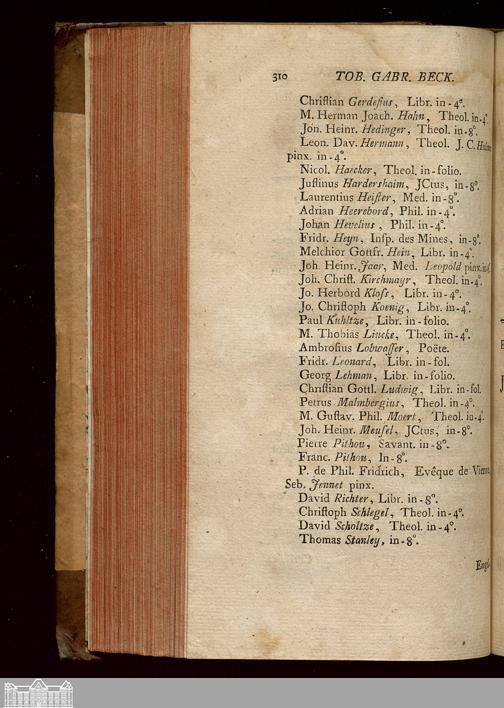 310 TOB. GABR. BECK.
Chriſtian Gerdeſius, Libr. in-4°.
M. Herman Joach. Hahn, Theol. in-4°.
Joh. Heinr. Hedinger, Theol. in-8°.
Leon. Dav. Hermann, Theol. J. C.
pinx. in-4°.
Nicol. Haecker, Theol. in-folio.
Juſtinus Hardershaim, JCtus, in-8°.
Laurentius Heiſter, Med. in-8°.
Adrian Heerebord, Phil. in-4°.
Johan Hevelius, Phil. in-4°.
Fridr. Heyn, Inſp. des Mines, in-8°.
Melchior Gottfr. Hein, Libr. in-4°.
Joh. Heinr. Jaar, Med. Leopold pinx. in-4
Joh. Chriſt. Kirchmayr, Theol. in-4°.
Jo. Herbord Kloſs, Libr. in-4°.
Jo. Chriſtoph Koenig, Libr. in-4°.
Paul Kuhltze, Libr. in-folio.
M. Thobias Lincke, Theol. in-4°.
Ambroſius Lobwaſſer, Poëte.
Fridr. Leonard, Libr. in-fol.
Georg Lehman, Libr. in-folio.
Chriſtian Gottl. Ludwig, Libr. in-fol.
Petrus Malmbergius, Theol. in-4°.
M. Guſtav. Phil. Moerl, Theol. in-4°.
Joh. Heinr. Meuſel, JCtus, in-8°.
Pierre Pithou, Savant. in-8°.
Franc. Pithou, In-8°.
P. de Phil. Fridrich, Evêque de Vienne
Seb. Jennet pinx.
David Richter, Libr. in-8°.
Chriſtoph Schlegel, Theol. in-4°.
David Scholtze, Theol. in-4°.
Thomas Stanley, in-8°.